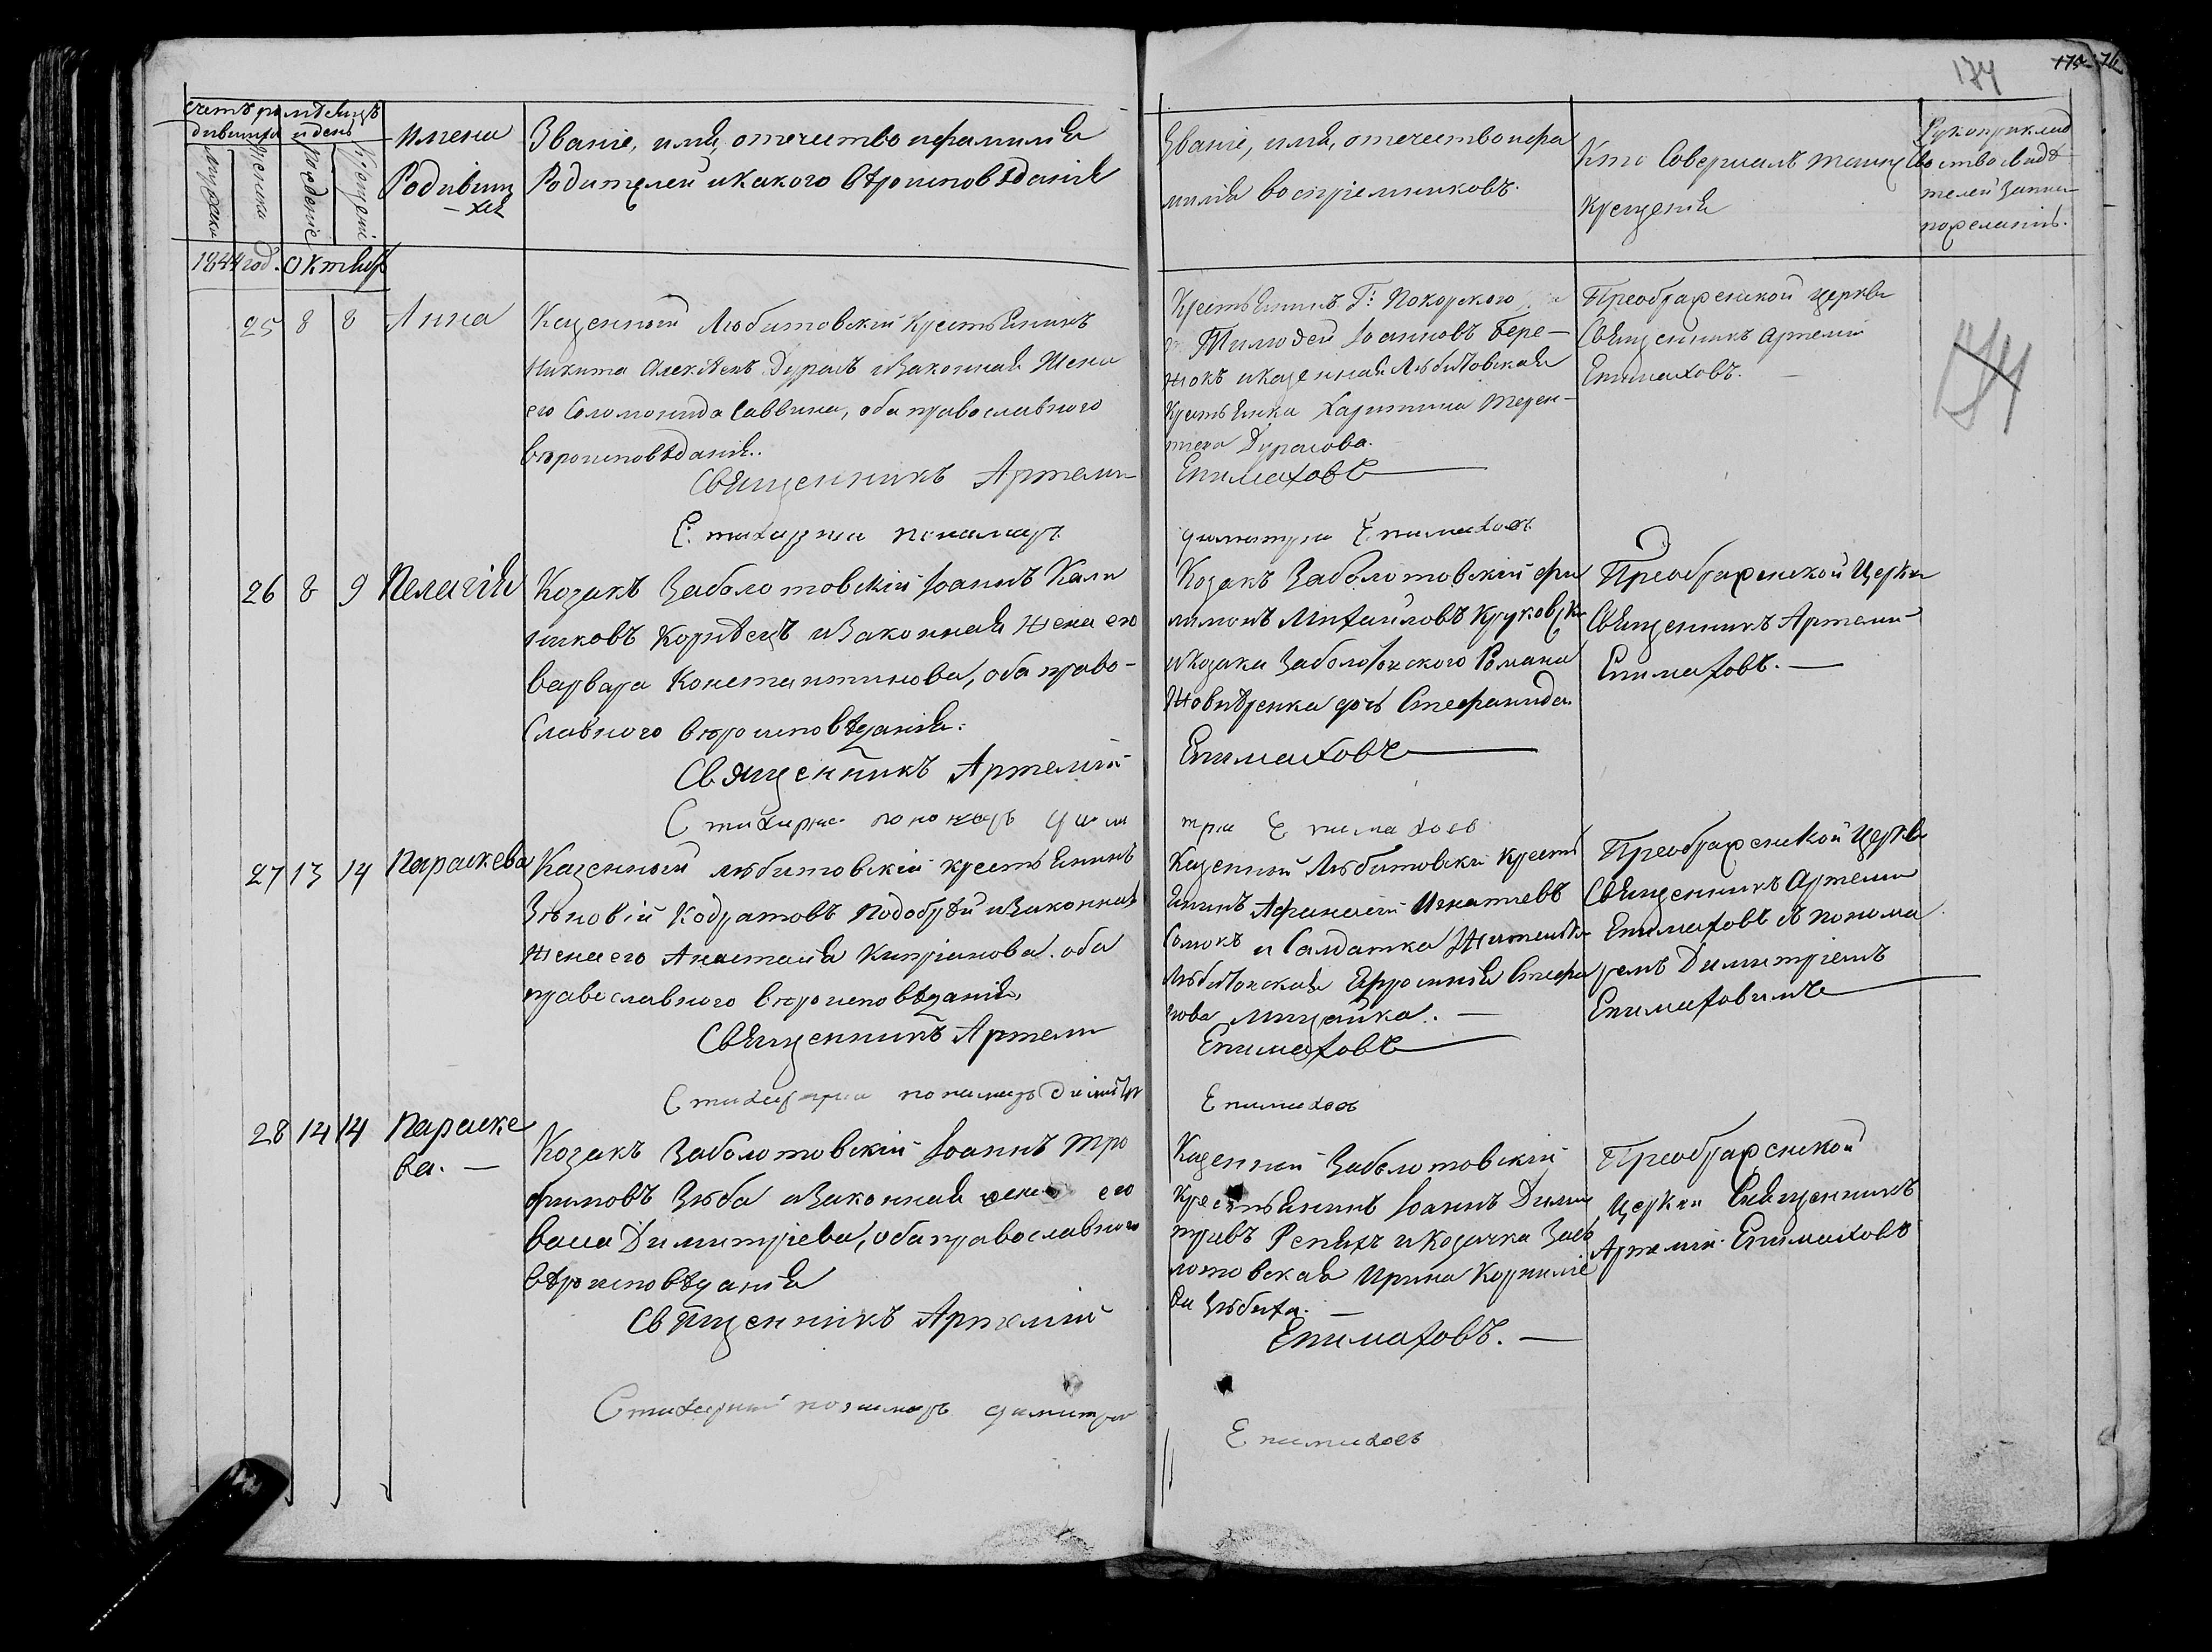 174
175 176
счетъ родивших
мужска
женска
рожденіе
крещеніе
Имена
Родивши
-хся
Званіе, имя, отечество и фамилія
Родителей и какого вѣроисповѣданія
Званіе, имя, отечество и фа
милія воспріемниковъ.
Кто Совершалъ таинство
крещенія
Рукоприклад
ство свидѣ
телей записи
по желанію.
1844 год. Октябр
25 8 8 Анна
Казенный Любитовскій крестьянинъ
Никита Алексѣевъ и законная Жена
его Соломонида Саввина, оба православного
вѣроисповѣданія..
Священникъ Артеми
пономарь
Крестьянинъ Г: Покорского
Іоанновъ Бере-
жокъ и казенная Любитовская
Крестьянка Харитина Терен-
тиева Дуракова.
Епимаховъ
димитри Епимаховъ
Преображенской церкви
Священникъ Артемій
Епимаховъ.
174
26 8 9 Пелагія
Козакъ Заболотовскій Іоаннъ Кали
никовъ Корнѣецъ и законная жена его
Варвара Константинова, оба право-
славного вѣроисповѣданія:
Священникъ Артемій
Стихарни пономарь дими
Козакъ Заболотовскій фи
лимонъ Михайловъ Круковск
и козака Заболотского Романа
дочь Стефанида
Епимаховъ
три Епимаховъ
Преображенской Церкви
Священникъ Артеми
Епимаховъ.—
27 13 14 Параскева
Казенный любитовскій крестьянинъ
Зѣновій Кодратовъ Подобрѣй и законная
жена его Анастасія Кипріанова. оба
православного вѣроисповѣданія,
Священникъ Артеми
Стихарни пономарь димитри
Казенный Любитовскі крестя
нинъ Афанасій Игнатиевъ
Сомокъ и Салдатка Жителька
Любитовская Ефросинія Стефа
нова Мицайка. —
Епимаховъ
Епимаховъ
Преображенской Церкви
Священникъ Артеми
Епимаховъ съ понома
ремъ Димитріемъ
Епимаховимъ
28 14 14 Параске
ва. —
Козакъ Заболотовскій Іоаннъ Тро
фимовъ Зюба и законная жена его
Васса Димитріева, оба православного
вѣроисповѣданія
Священникъ Артемій
Стихарный пономарь димитри
Казенный Заболотовскій
Крестьянинъ Іоаннъ Дими
тривъ Репяхъ и козачка Забо
лотовская Ирина Корниліе
ва Зюбиха. —
Епимаховъ. —
Епимаховъ
Преображенской
Церкви Священникъ
Артемій Епимаховъ